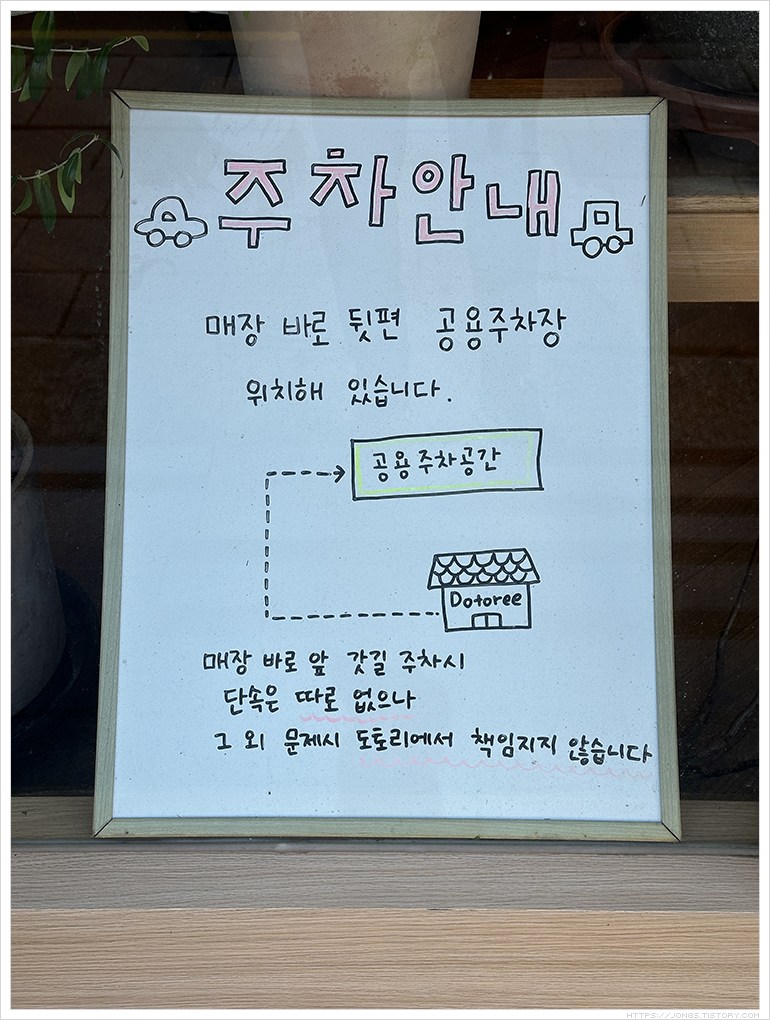 주차안내
매장 바로 뒷편 공용주차장
위치해 있습니다.
공용주차공간
Dotoree
매장 바로 앞 갓길 주차시
단속은 따로 없으나
그 외 문제시 도토리에서 책임지지 않습니다
HTTPS://JONGS.TISTORY.COM